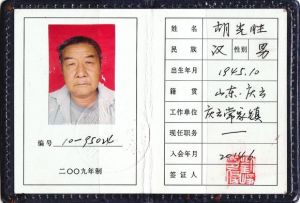 编号 10-95024
二〇〇九年制
姓名 胡光胜
民族 汉 性别 男
出生年月 1945.10
籍贯 山东·庆云
工作单位 庆云常家镇
现任职务 —
入会年月
签证人